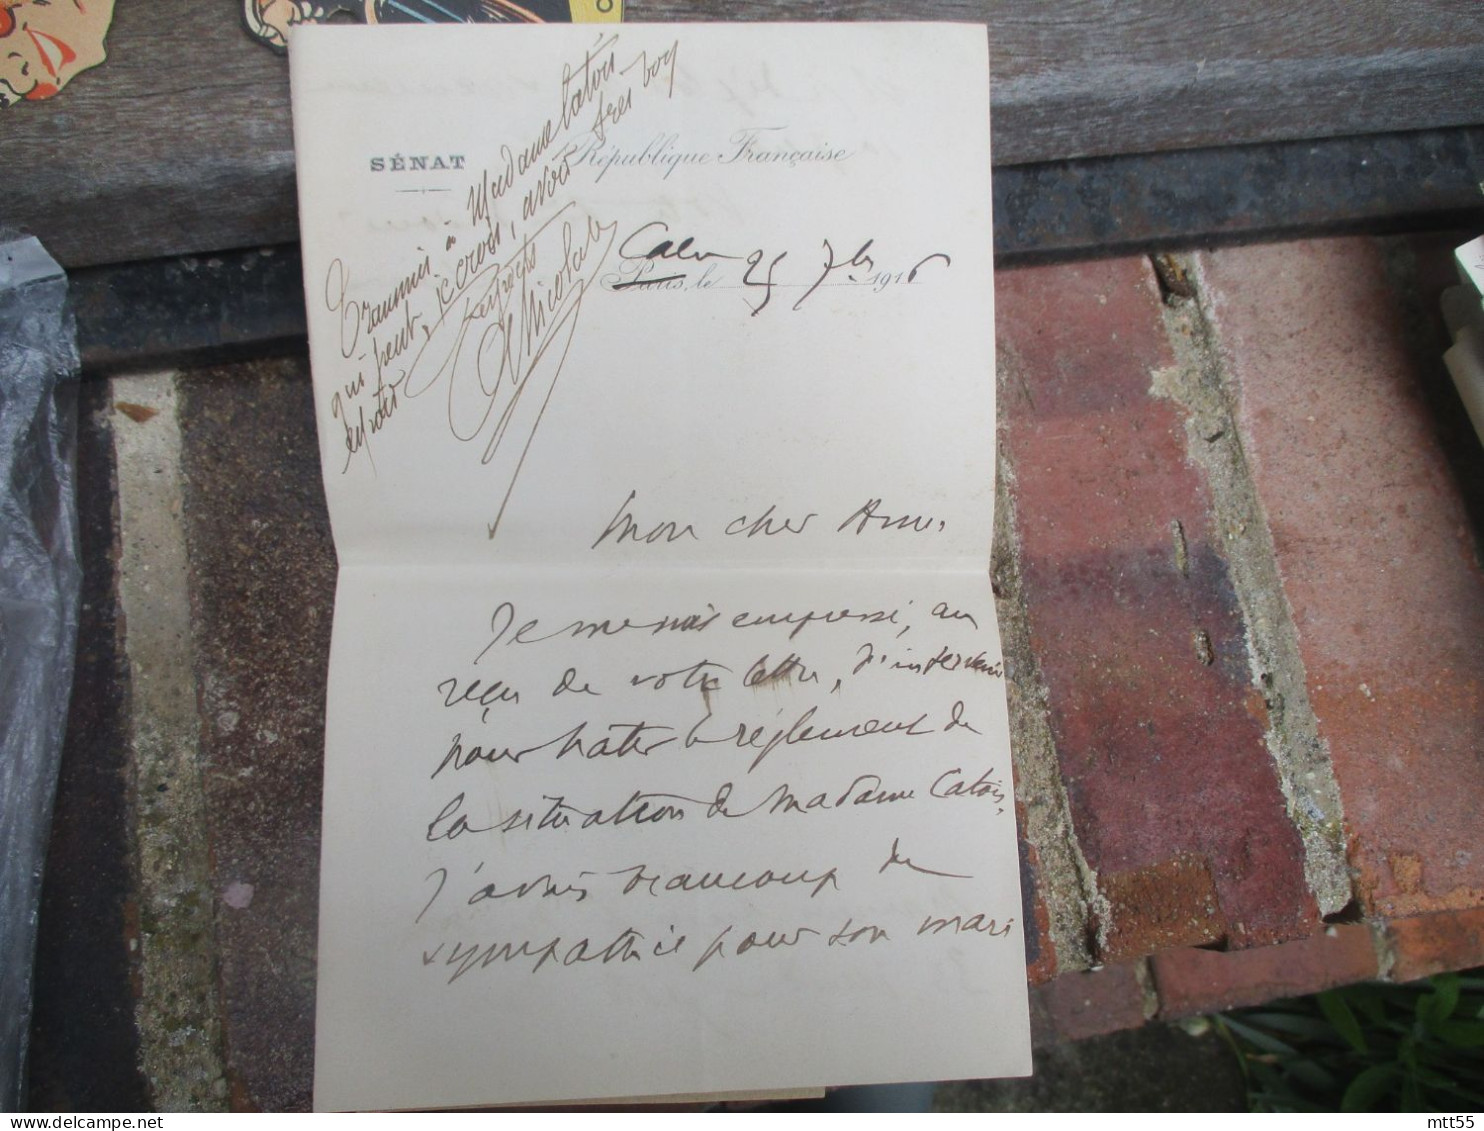 SÉNAT
République Française
Transmis à Madame Catois
qui peut, je crois, avoir très bon
espoir
Respects
Caen
Paris, le 25 7bre 1916
Mon cher Ami,
Je me suis empressé, au
reçu de votre lettre, d'intervenir
pour hâter le règlement de
la situation de Madame Catois.
J'avais beaucoup de
sympathie pour son mari
mtt55